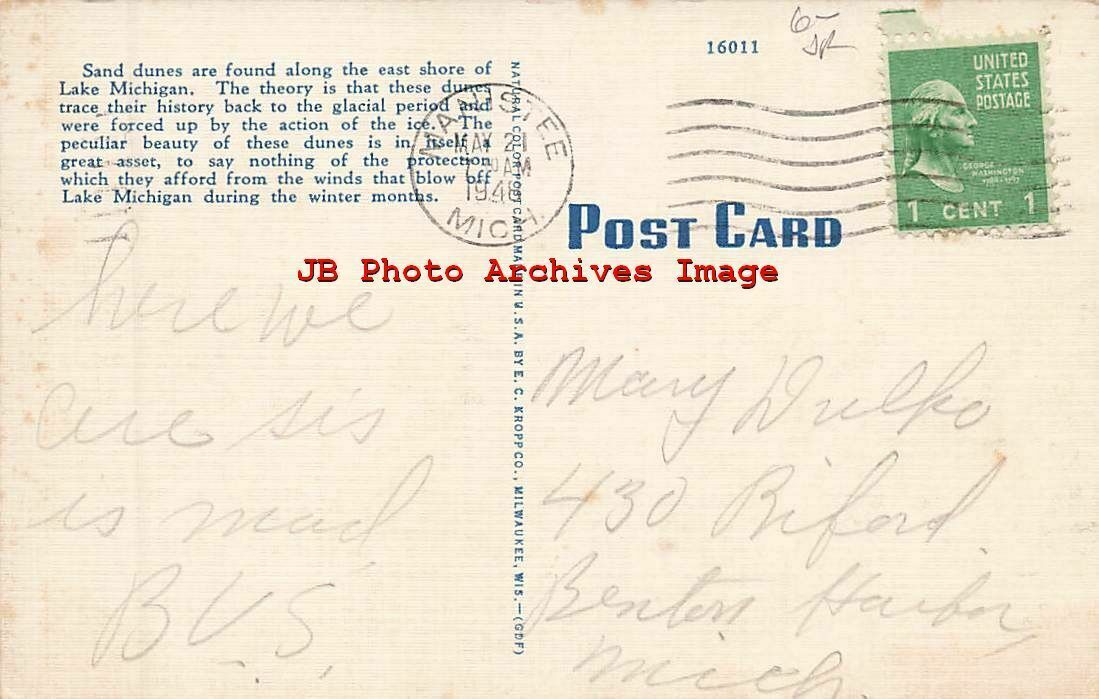 16011
6-
Sand dunes are found along the east shore of
Lake Michigan. The theory is that these dunes
trace their history back to the glacial period and
were forced up by the action of the ice. The
peculiar beauty of these dunes is in itself a
great asset, to say nothing of the protection
which they afford from the winds that blow off
Lake Michigan during the winter months.
MANISTEE
MAY 21
AM
1946
MICH.
UNITED
STATES
POSTAGE
GEORGE
WASHINGTON
1 CENT 1
POST CARD
JB Photo Archives Image
NATURAL COLOR POST CARD MADE IN U.S.A. BY E. C. KROPP CO., MILWAUKEE, WIS.—(GDF)
here we
are sis
is mad
B.V.S.
Mary Dulko
430 Biford
Benton Harbor
Mich.